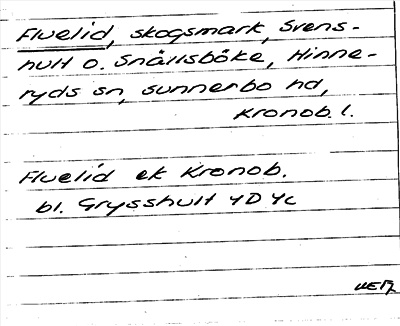 Fluelid, skogsmark, Svens-
hult o. Snällsböke, Hinne-
ryds sn, Sunnerbo hd,
Kronob. l.
Fluelid ek Kronob.
bl. Grysshult 4D 4c